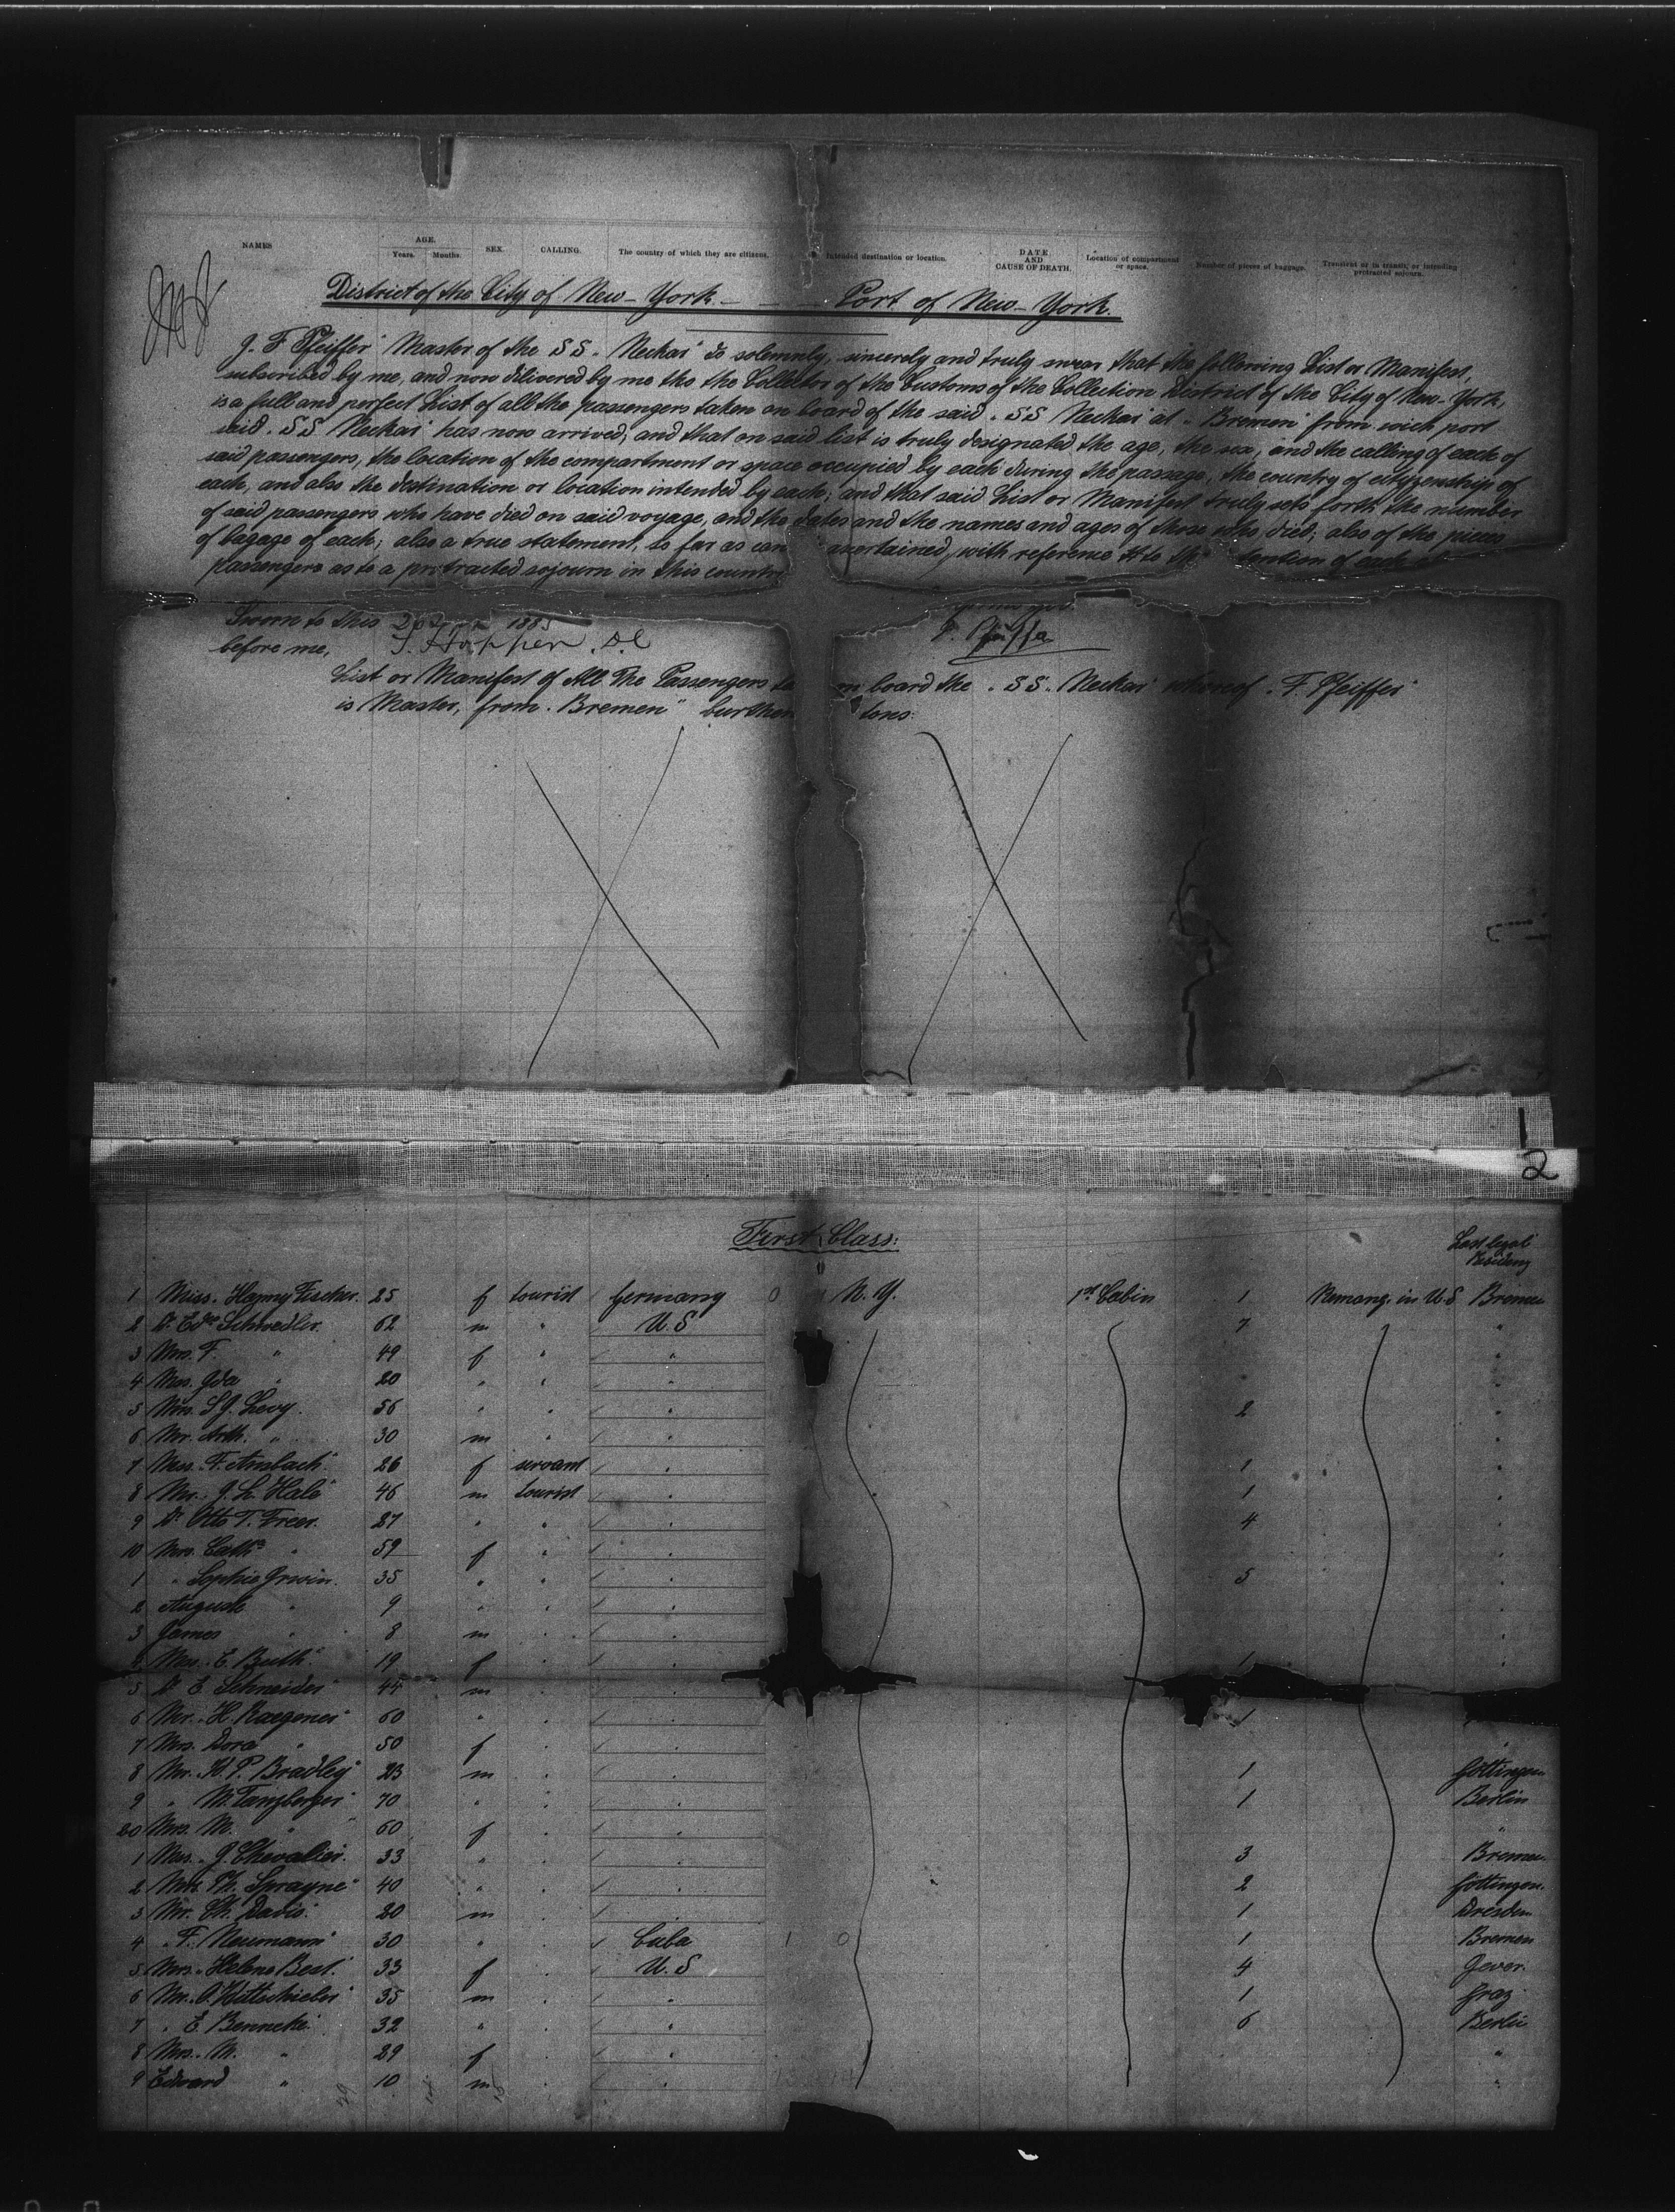 NAMES AGE. Years. Months. SEX. CALLING. The country of which they are citizens. Intended destination or location. DATE AND CAUSE OF DEATH. Location of compartment or space. Number of pieces of baggage. Transient or in transit, or intending protracted sojourn.
District of the City of New-York - - - Port of New-York.
J. F. Pfeiffer" Master of the SS. Neckar" do solemnly, sincerely and truly swear that the following List or Manifest,
subscribed by me, and now delivered by me tho the Collector of the Customs of the Collection District of the City of New-York,
is a full and perfect List of all the passengers taken on board of the said "SS Neckar" at "Bremen" from wich port
said "SS Neckar" has now arrived; and that on said list is truly designated the age, the sex, and the calling of each of
said passengers, the location of the compartment or space occupied by each during the passage, the country of cityzenship of
each, and also the destination or location intended by each; and that said List or Manifest truly sets forth the number
of said passengers who have died on said voyage, and the dates and the names and ages of those who died; also of the pieces
of bagage of each; also a true statement, so far as can ascertained, with reference to the intention of each
passengers as to a protracted sojourn in this country
Sworn to this 1885
before me, S. Hopper. D.C F. Pfeiffer
List or Manifest of All The Passengers on board the "SS. Neckar" whereof "F. Pfeiffer"
is Master, from "Bremen" burthen tons:
1
2
First Class:
Last legal Residency
1 Miss. Hanny Fischer. 25 f tourist Germany N.Y. 1st Cabin 1 Remang. in U.S Bremen
2 Dr. Edw Schwedler. 62 m " U.S 7 "
3 Mrs. F. " 49 f " " "
4 Mss. Ida " 20 " " " "
5 Mrs. S.J. Levy. 56 " " " 2 "
6 Mr. Arth. " 30 m " " "
7 Mss. F. Ansbach" 26 f servant " 1 "
8 Mr. J. L. Hale" 46 m tourist " 1 "
9 Dr. Otto T. Freer. 27 " " " 4 "
10 Mrs. Cath. " 59 f " " "
1 " Sophie Irwin. 35 " " " 5 "
2 Auguste " 9 " " " "
3 James " 8 m " " "
4 Mss. E. Buth." 19 f " " 1 "
5 Dr. E. Schneider" 44 m " "
6 Mr. H. Raegener" 60 " " " 1 "
7 Mrs. Dora " 50 f " " "
8 Mr. H. P. Bradley" 23 m " " 1 Göttingen
9 " M. Tanzberger" 70 " " " 1 Berlin
20 Mrs. M. " 60 f " " "
1 Mss. J. Chevalier. 33 " " " 3 Bremen
2 Mrs. Ph. Sprayne" 40 " " " 2 Göttingen.
3 Mr. Ch. Davis. 20 m " " 1 Dresden
4 " F. Neumann" 30 " " Cuba 1 0 1 Bremen
5 Mrs. Helene Best. 33 f " U.S 4 Jever.
6 Mr. O. 35 m " " 1 Graz.
7 " E. Benneke. 32 " " " 6 Berlin
8 Mrs. M. " 29 f " " "
9 Edward " 10 m " " "